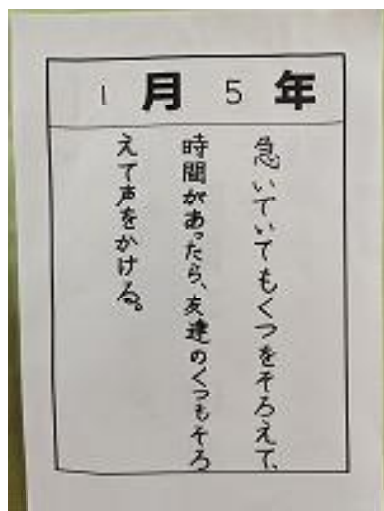 1月 5年
急いでいてもくつをそろえて、
時間があったら、友達のくつもそろ
えて声をかける。